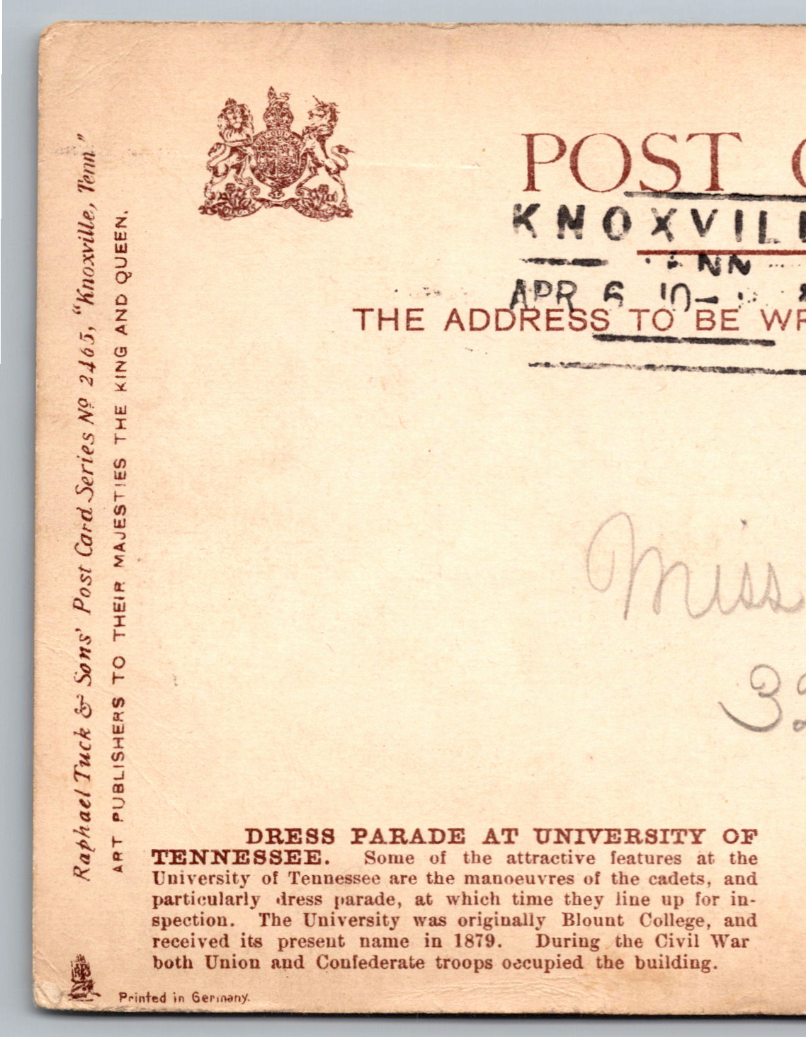 POST
KNOXVIL
APR 6 10
THE ADDRESS TO BE
Miss
Raphael Tuck & Sons' Post Card Series No 2465, "Knoxville, Tenn"
ART PUBLISHERS TO THEIR MAJESTIES THE KING AND QUEEN.
DRESS PARADE AT UNIVERSITY OF
TENNESSEE. Some of the attractive features at the
University of Tennessee are the manoeuvres of the cadets, and
particularly dress parade, at which time they line up for in-
spection. The University was originally Blount College, and
received its present name in 1879. During the Civil War
both Union and Confederate troops occupied the building.
Printed in Germany.